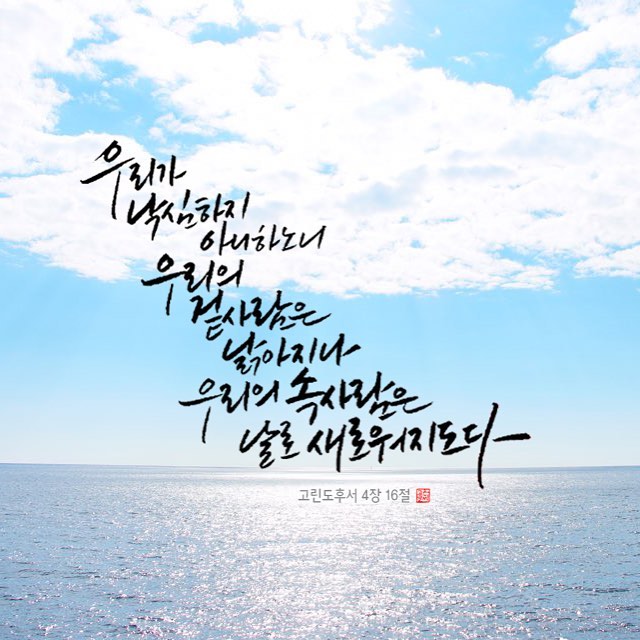 우리가
낙심하지
아니하노니
우리의
겉사람은
낡아지나
우리의 속사람은
날로 새로워지도다
고린도후서 4장 16절